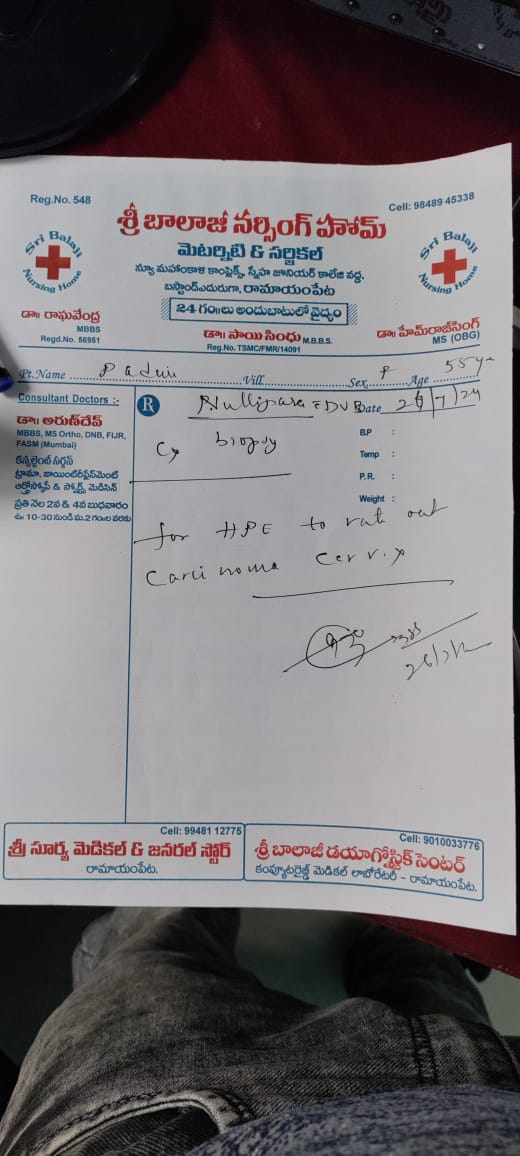 Reg.No. 548
Cell: 98489 45338
శ్రీ బాలాజీ నర్సింగ్ హోమ్
Sri Balaji Nursing Home
మెటర్నిటి & సర్జికల్
Sri Balaji Nursing Home
న్యూ మహంకాళ కాంప్లెక్స్, స్నేహ జూనియర్ కాలేజి వద్ద,
బస్టాండ్ఎదురుగా, రామాయంపేట
24 గం॥లు అందుబాటులో వైద్యం
డా॥ రాఘవేంద్ర
MBBS
Regd.No. 56951
డా॥ సాయి సింధు M.B.B.S.
Reg.No. TSMC/FMR/14091
డా॥ హేమ్‌రాజ్‌సింగ్
MS (OBG)
Pt. Name Vill. Sex Age 55 ys
Consultant Doctors :-
డా॥ అరుణ్‌దేవ్
MBBS, MS Ortho, DNB, FIJR,
FASM (Mumbai)
కన్సల్టెంట్ సర్జన్
ట్రామా, జాయింట్‌రీప్లేస్‌మెంట్
ఆర్థ్రోస్కోపీ & స్పోర్ట్స్ మెడిసిన్
ప్రతి నెల 2వ & 4వ బుధవారం
ఉ॥ 10-30 నుండి మ.2 గంటల వరకు
R
Nullipara Date
B.P :
Temp :
P.R. :
Weight :
Cx biopsy
for HPE to rule out
Carcinoma Cervix
Cell: 99481 12775
శ్రీ సూర్య మెడికల్ & జనరల్ స్టోర్
రామాయంపేట.
Cell: 9010033776
శ్రీ బాలాజీ డయాగ్నోస్టిక్ సెంటర్
కంప్యూటరైజ్డ్ మెడికల్ లాబోరేటరీ - రామాయంపేట.